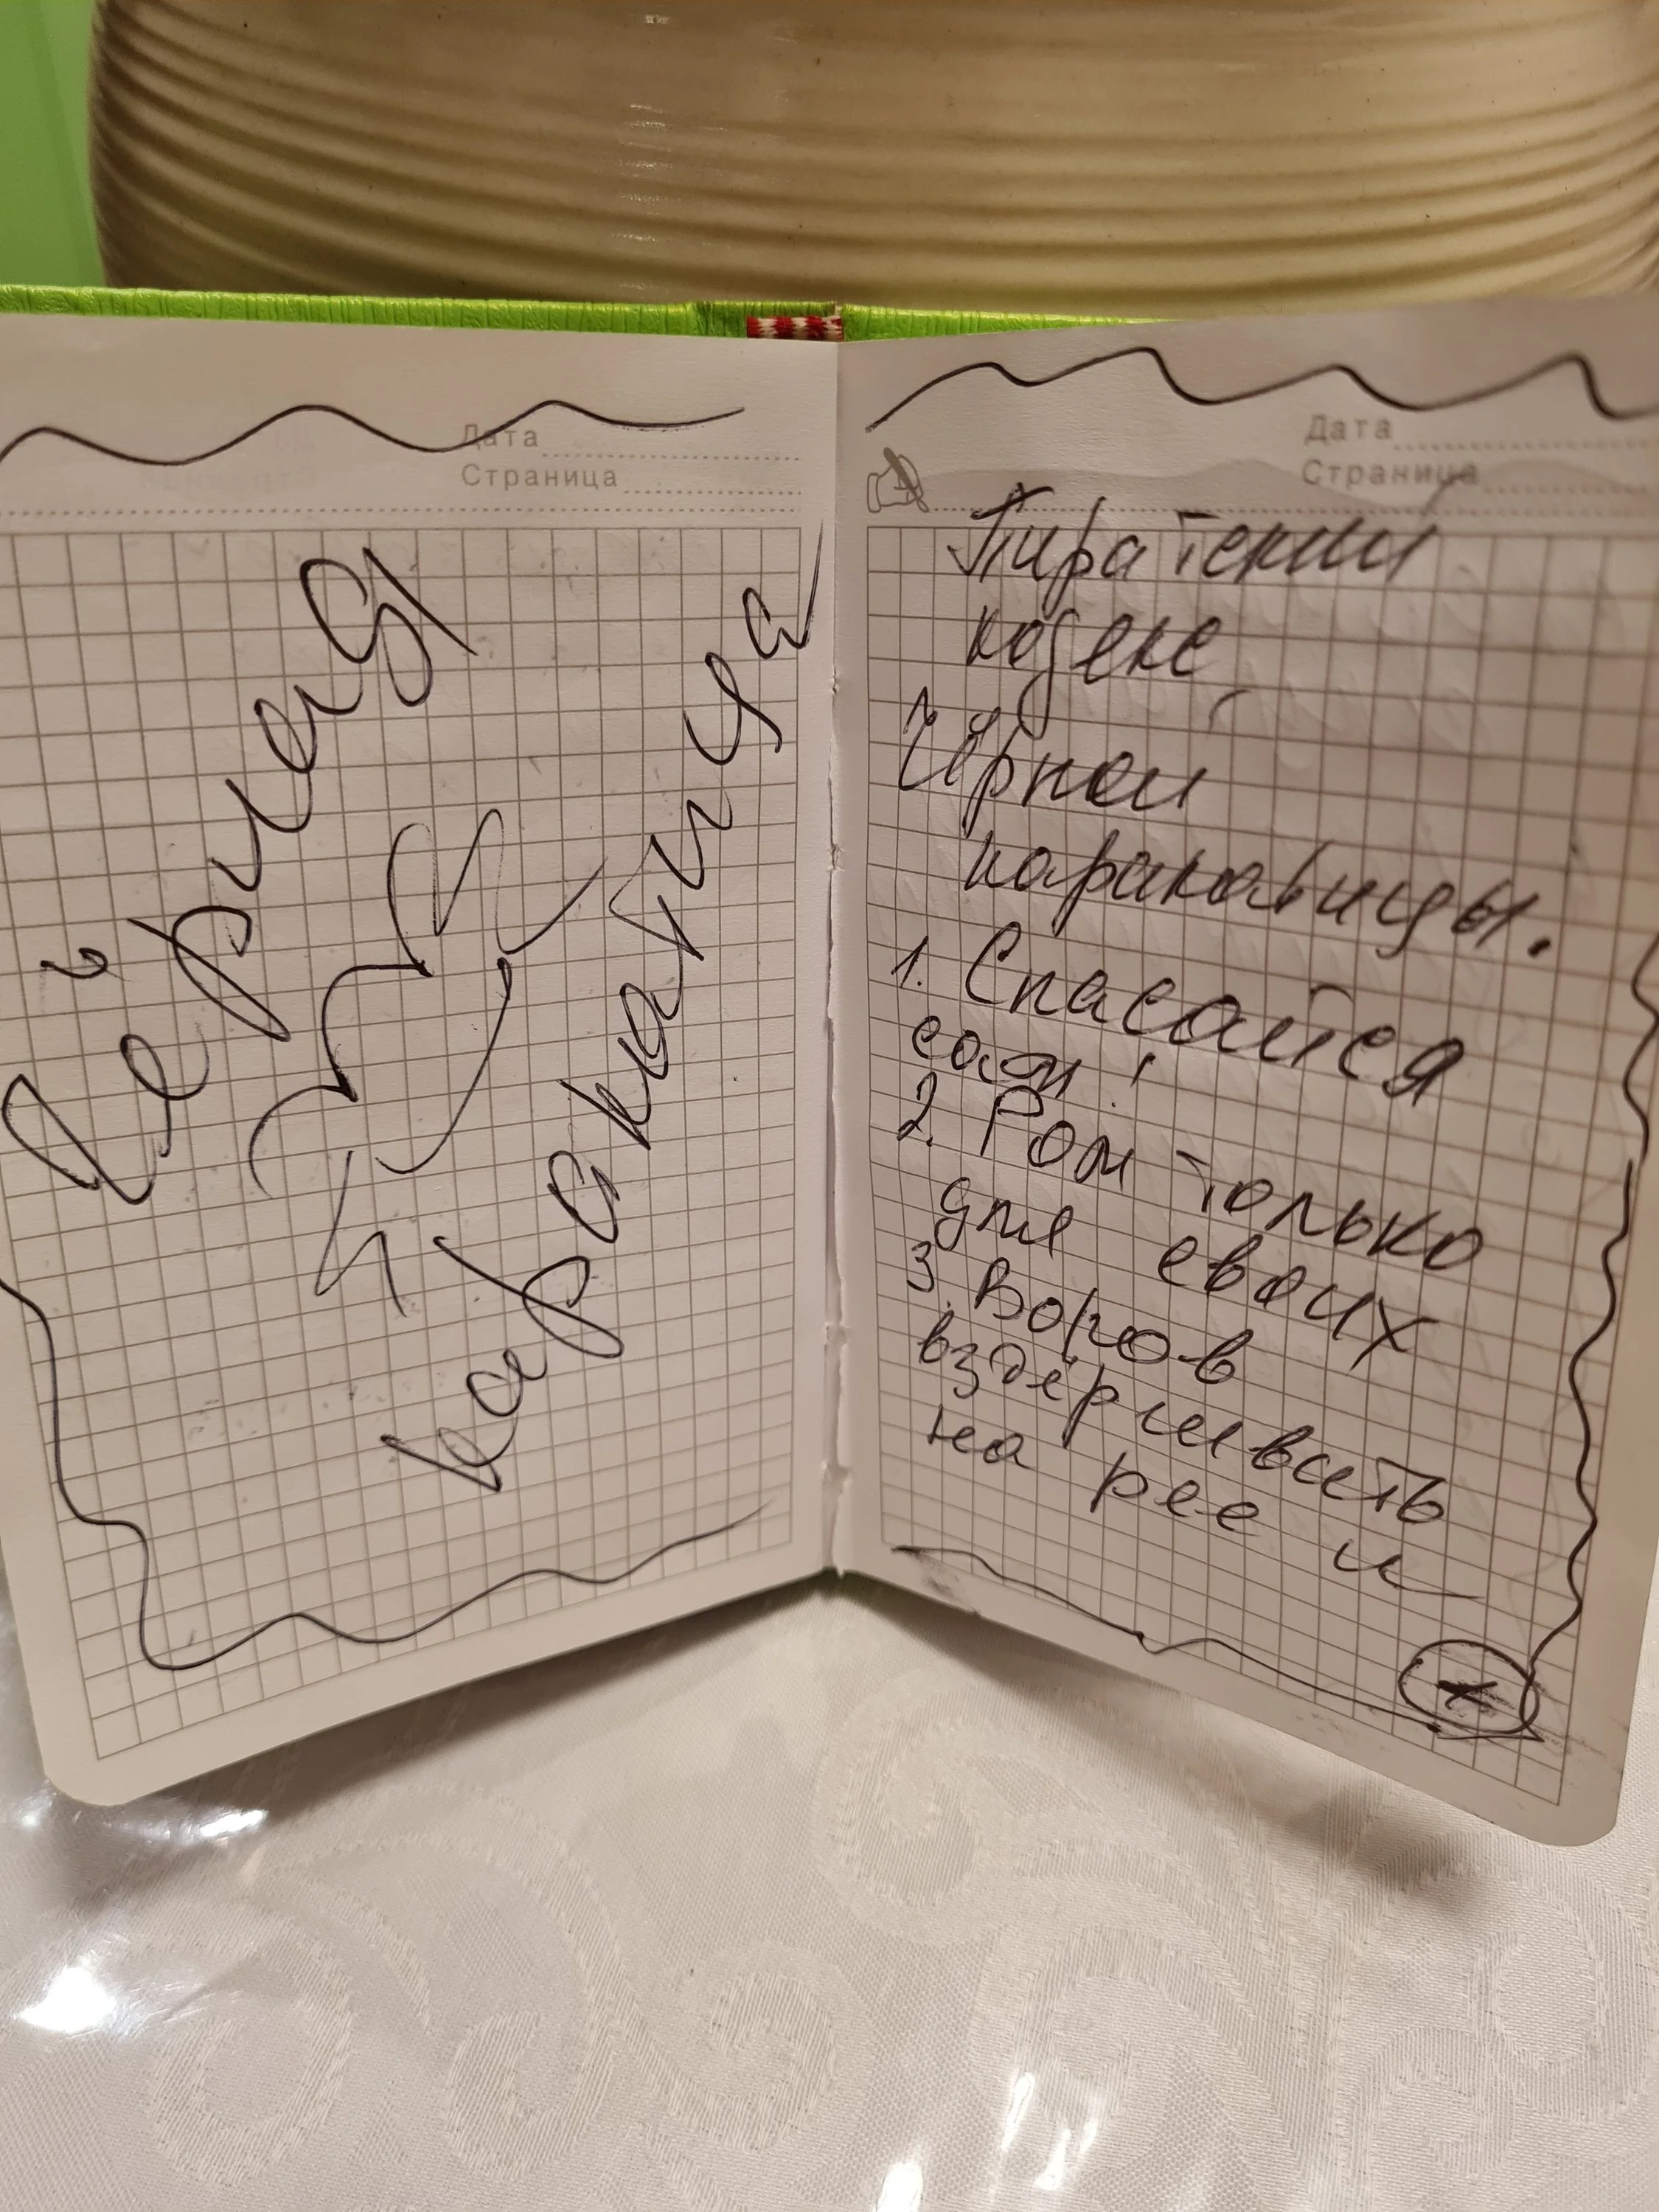 Дата
Страница
Чёрная
каракатица
Дата
Страница
Пиратский
кодекс
Чёрной
каракатицы.
1. Спасайся
сам!
2. Ром только
для своих
3. Воров
вздёрнивать
на рее и